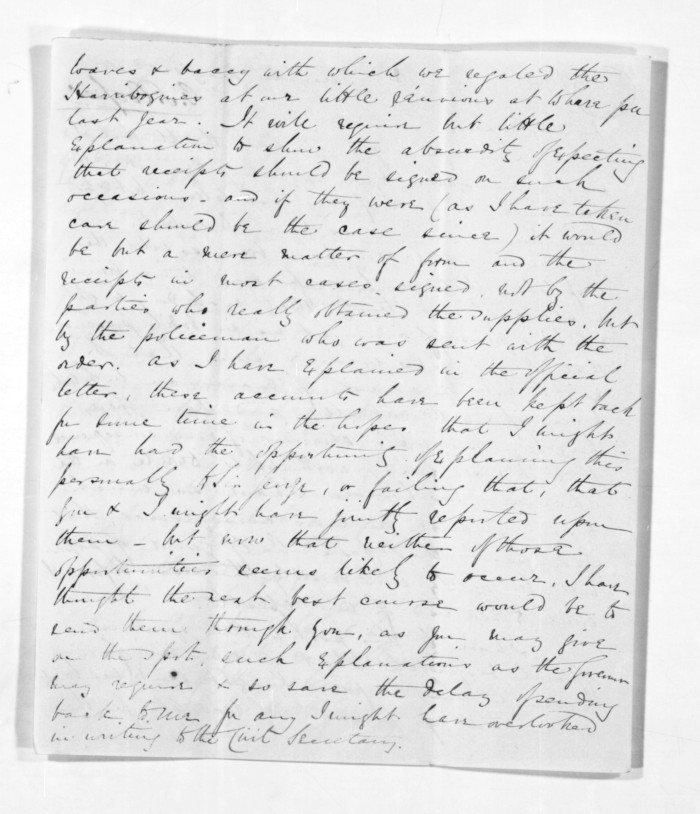 loaves & baccy with which we regaled the
at our little réunions at Whare
last year. It will require but little
Explanation to show the absurdity of Expecting
that receipts should be signed on such
occasions - and if they were (as I have taken
care should be the case since) it would
be but a mere matter of form and the
receipts in most cases signed, not by the
parties who really obtained the supplies, but
by the policeman who was sent with the
order. As I have Explained in the official
letter, these accounts have been kept back
for some time in the hopes that I might
have had the opportunity of Explaining this
personally to Sir George, or failing that, that
you & I might have jointly reported upon
them - but now that neither of those
opportunities seems likely to occur, I have
thought the next best course would be to
send them through you, as you may give
on the spot, such Explanations as the Governor
may require & so save the delay of sending
back to me for any I might have overlooked
in writing to the Civil Secretary.